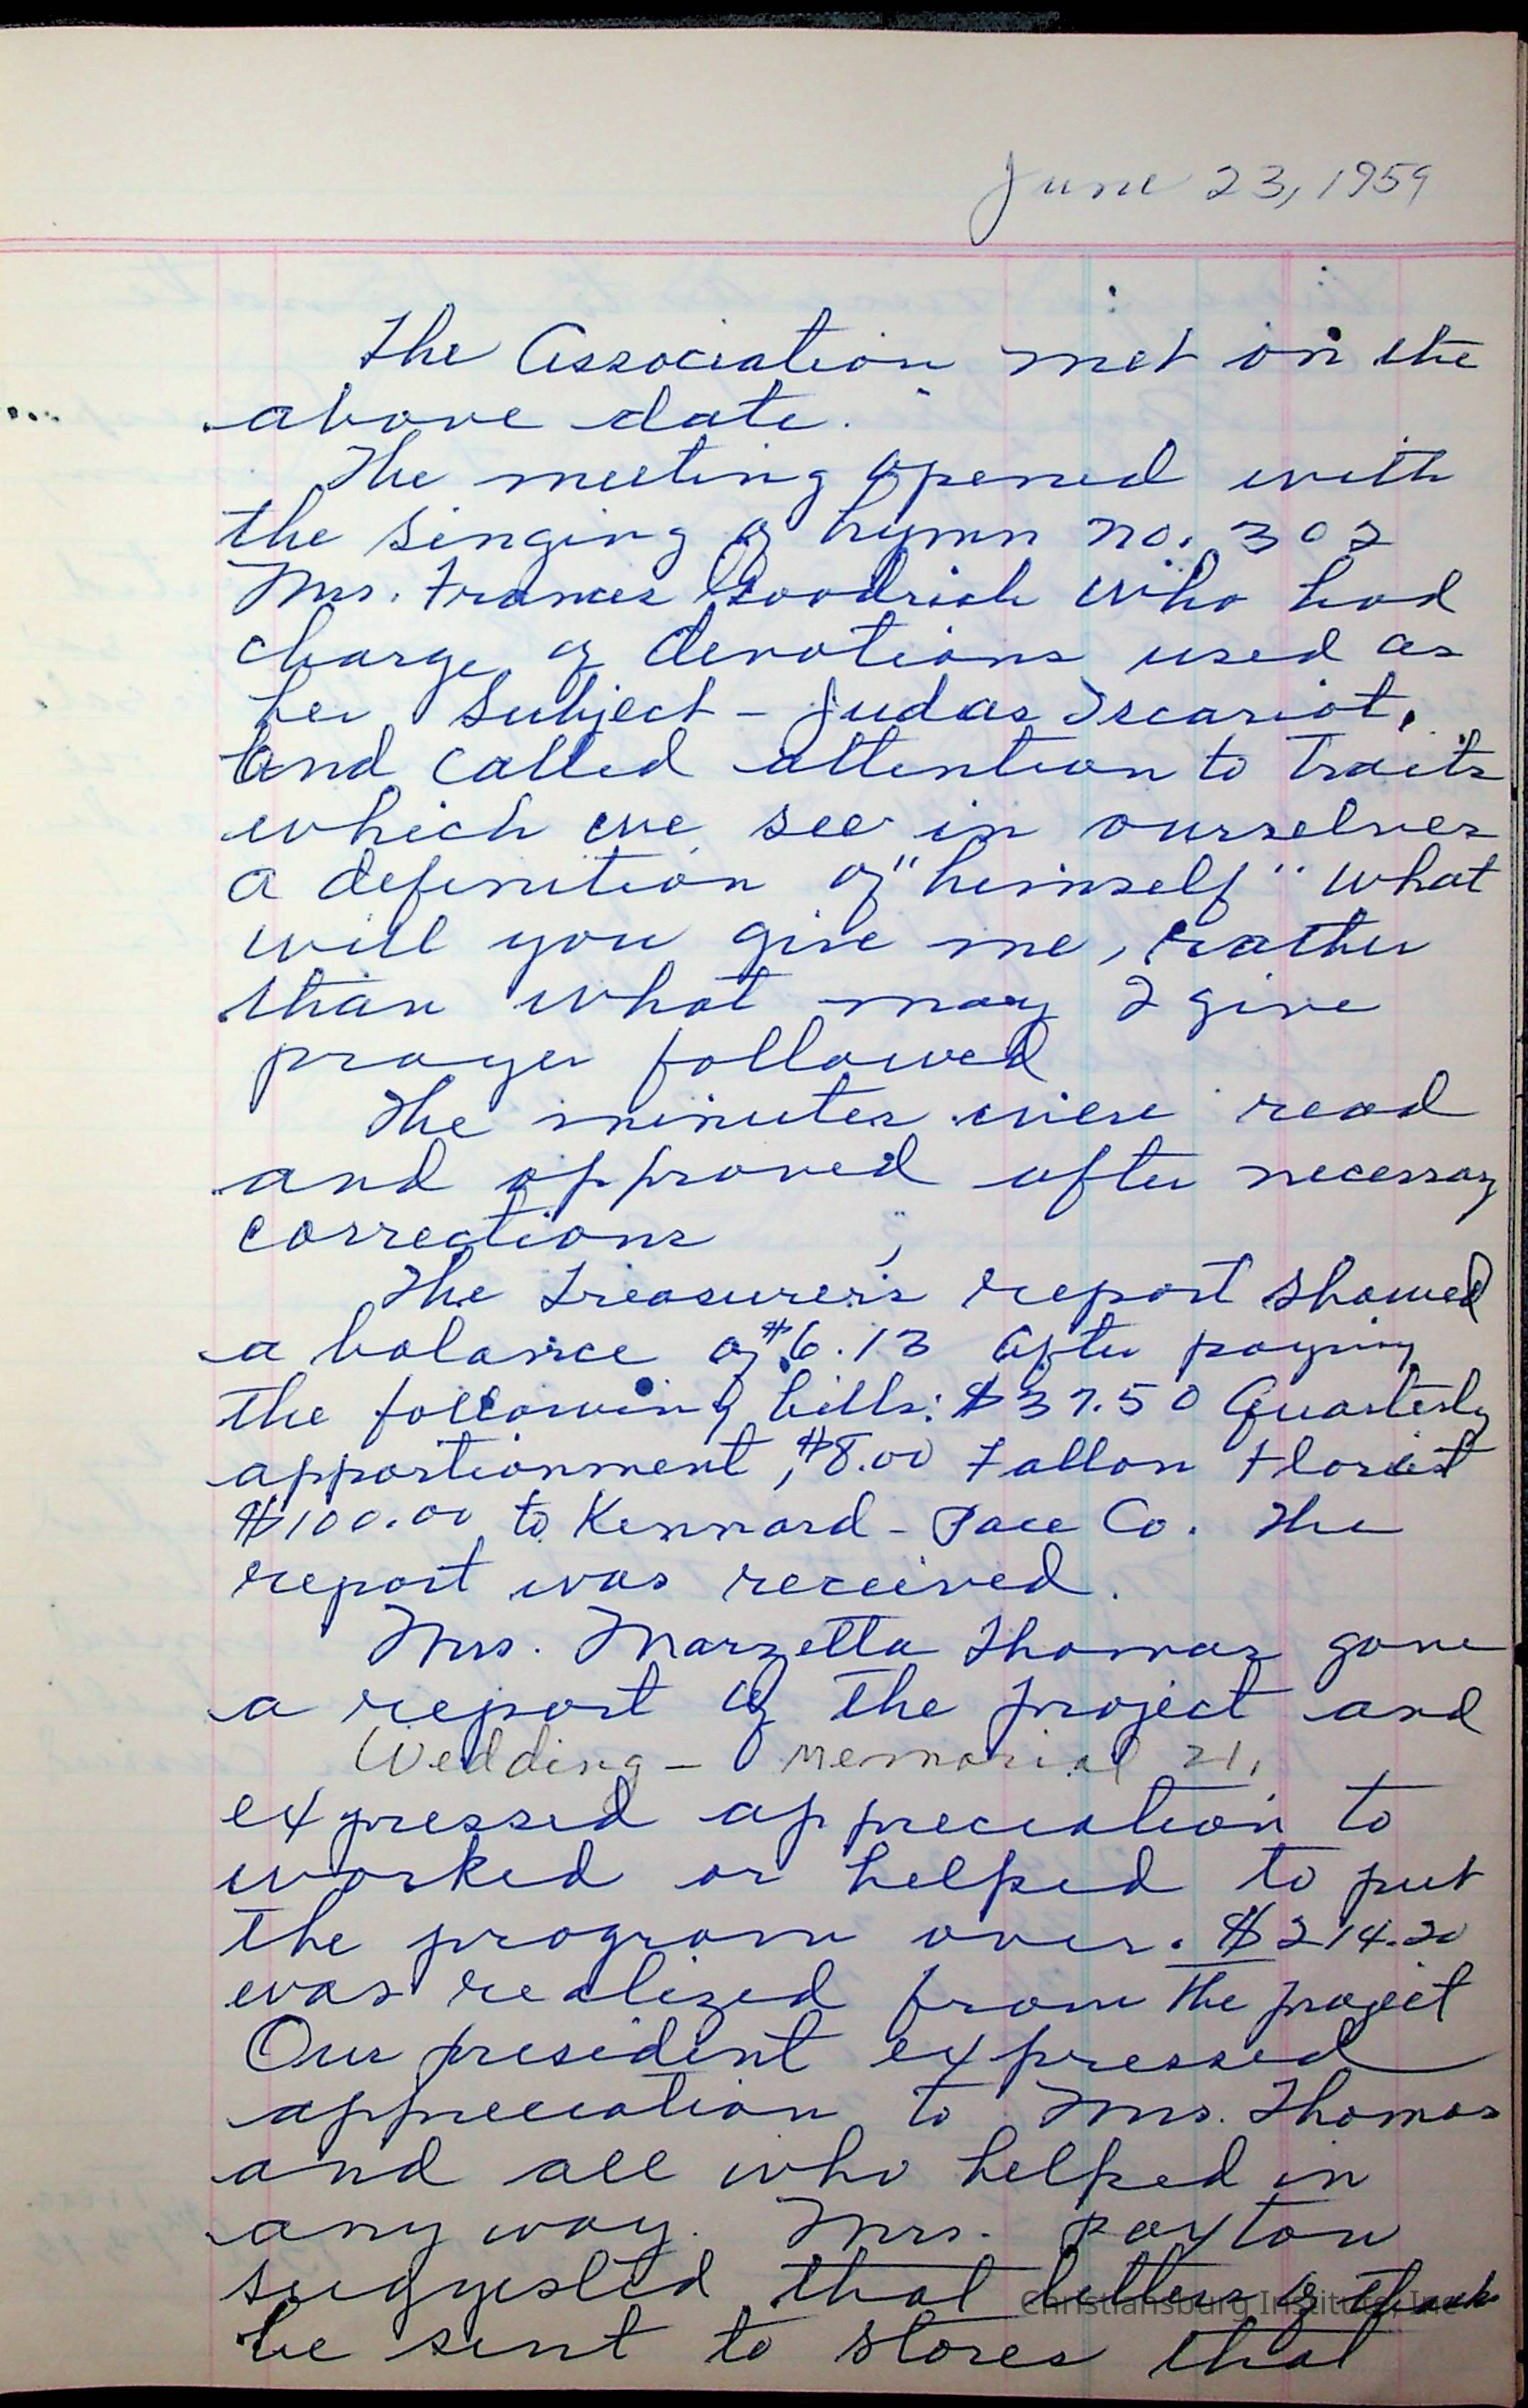 June 23, 1959
The Association met on the
above date.
The meeting opened with
the singing of hymn no. 302
Mrs. Frances Goodrich who had
charge of devotions used as
her subject - Judas Iscariot.
and called attention to traits
which we see in ourselves
a definition of "himself" what
will you give me, rather
than what may I give
prayer followed
The minutes were read
and approved after necessary
corrections
The treasurer's report showed
a balance of $6.13 after paying
the following bills: $37.50 Quarterly
apportionment, $8.00 Fallon Florist
$100.00 to Kennard - Pace Co. The
report was received.
Mrs. Marzetta Thomas gave
a report of the project and
Wedding - Memorial 21,
expressed appreciation to
worked or helped to put
the program over. $214.20
was realized from the project
Our president expressed
appreciation to Mrs. Thomas
and all who helped in
any way. Mrs. Paxton
suggested that letters of thank
be sent to stores that
Christiansburg Institute, Inc